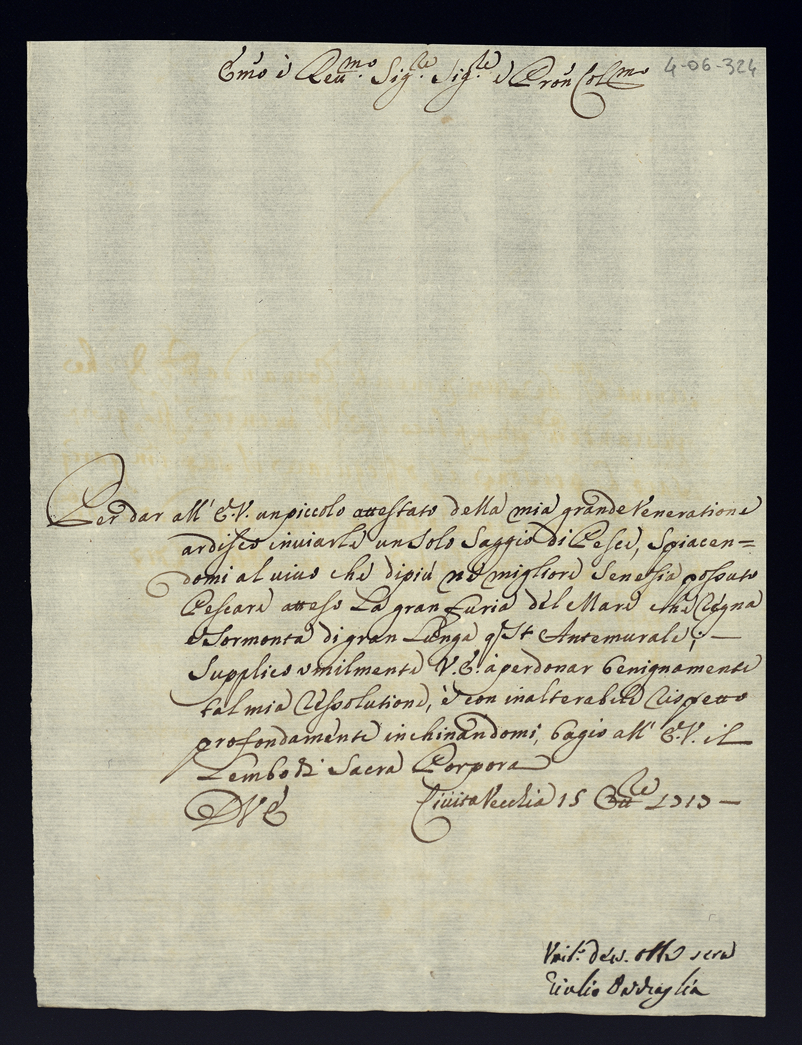 Em̃o è Reu.mo Sig.re Sig.re è Prõn Col.mo 4-06-324
Per dar all' E.V. un piccolo attestato della mia grande Veneratione
ardisco inviarle un solo saggio di Pesce, spiacen=
domi al uiuo che di più né migliore se ne sia possuto
Pescare atteso La gran furia del Mare che Regna
e Sormonta di gran Lunga q.sti Antemurale; —
Supplico umilmente V.E. à perdonar benignamente
tal mia ressolutione, è con inalterabile rispetto
profondamente inchinandomi, bagio all' E.V. il
Lembo di Sacra Porpora
DVE Ciuita Vecchia 15 Ott.re 1713 —
Vmil.o deu. otto seru
Giulio